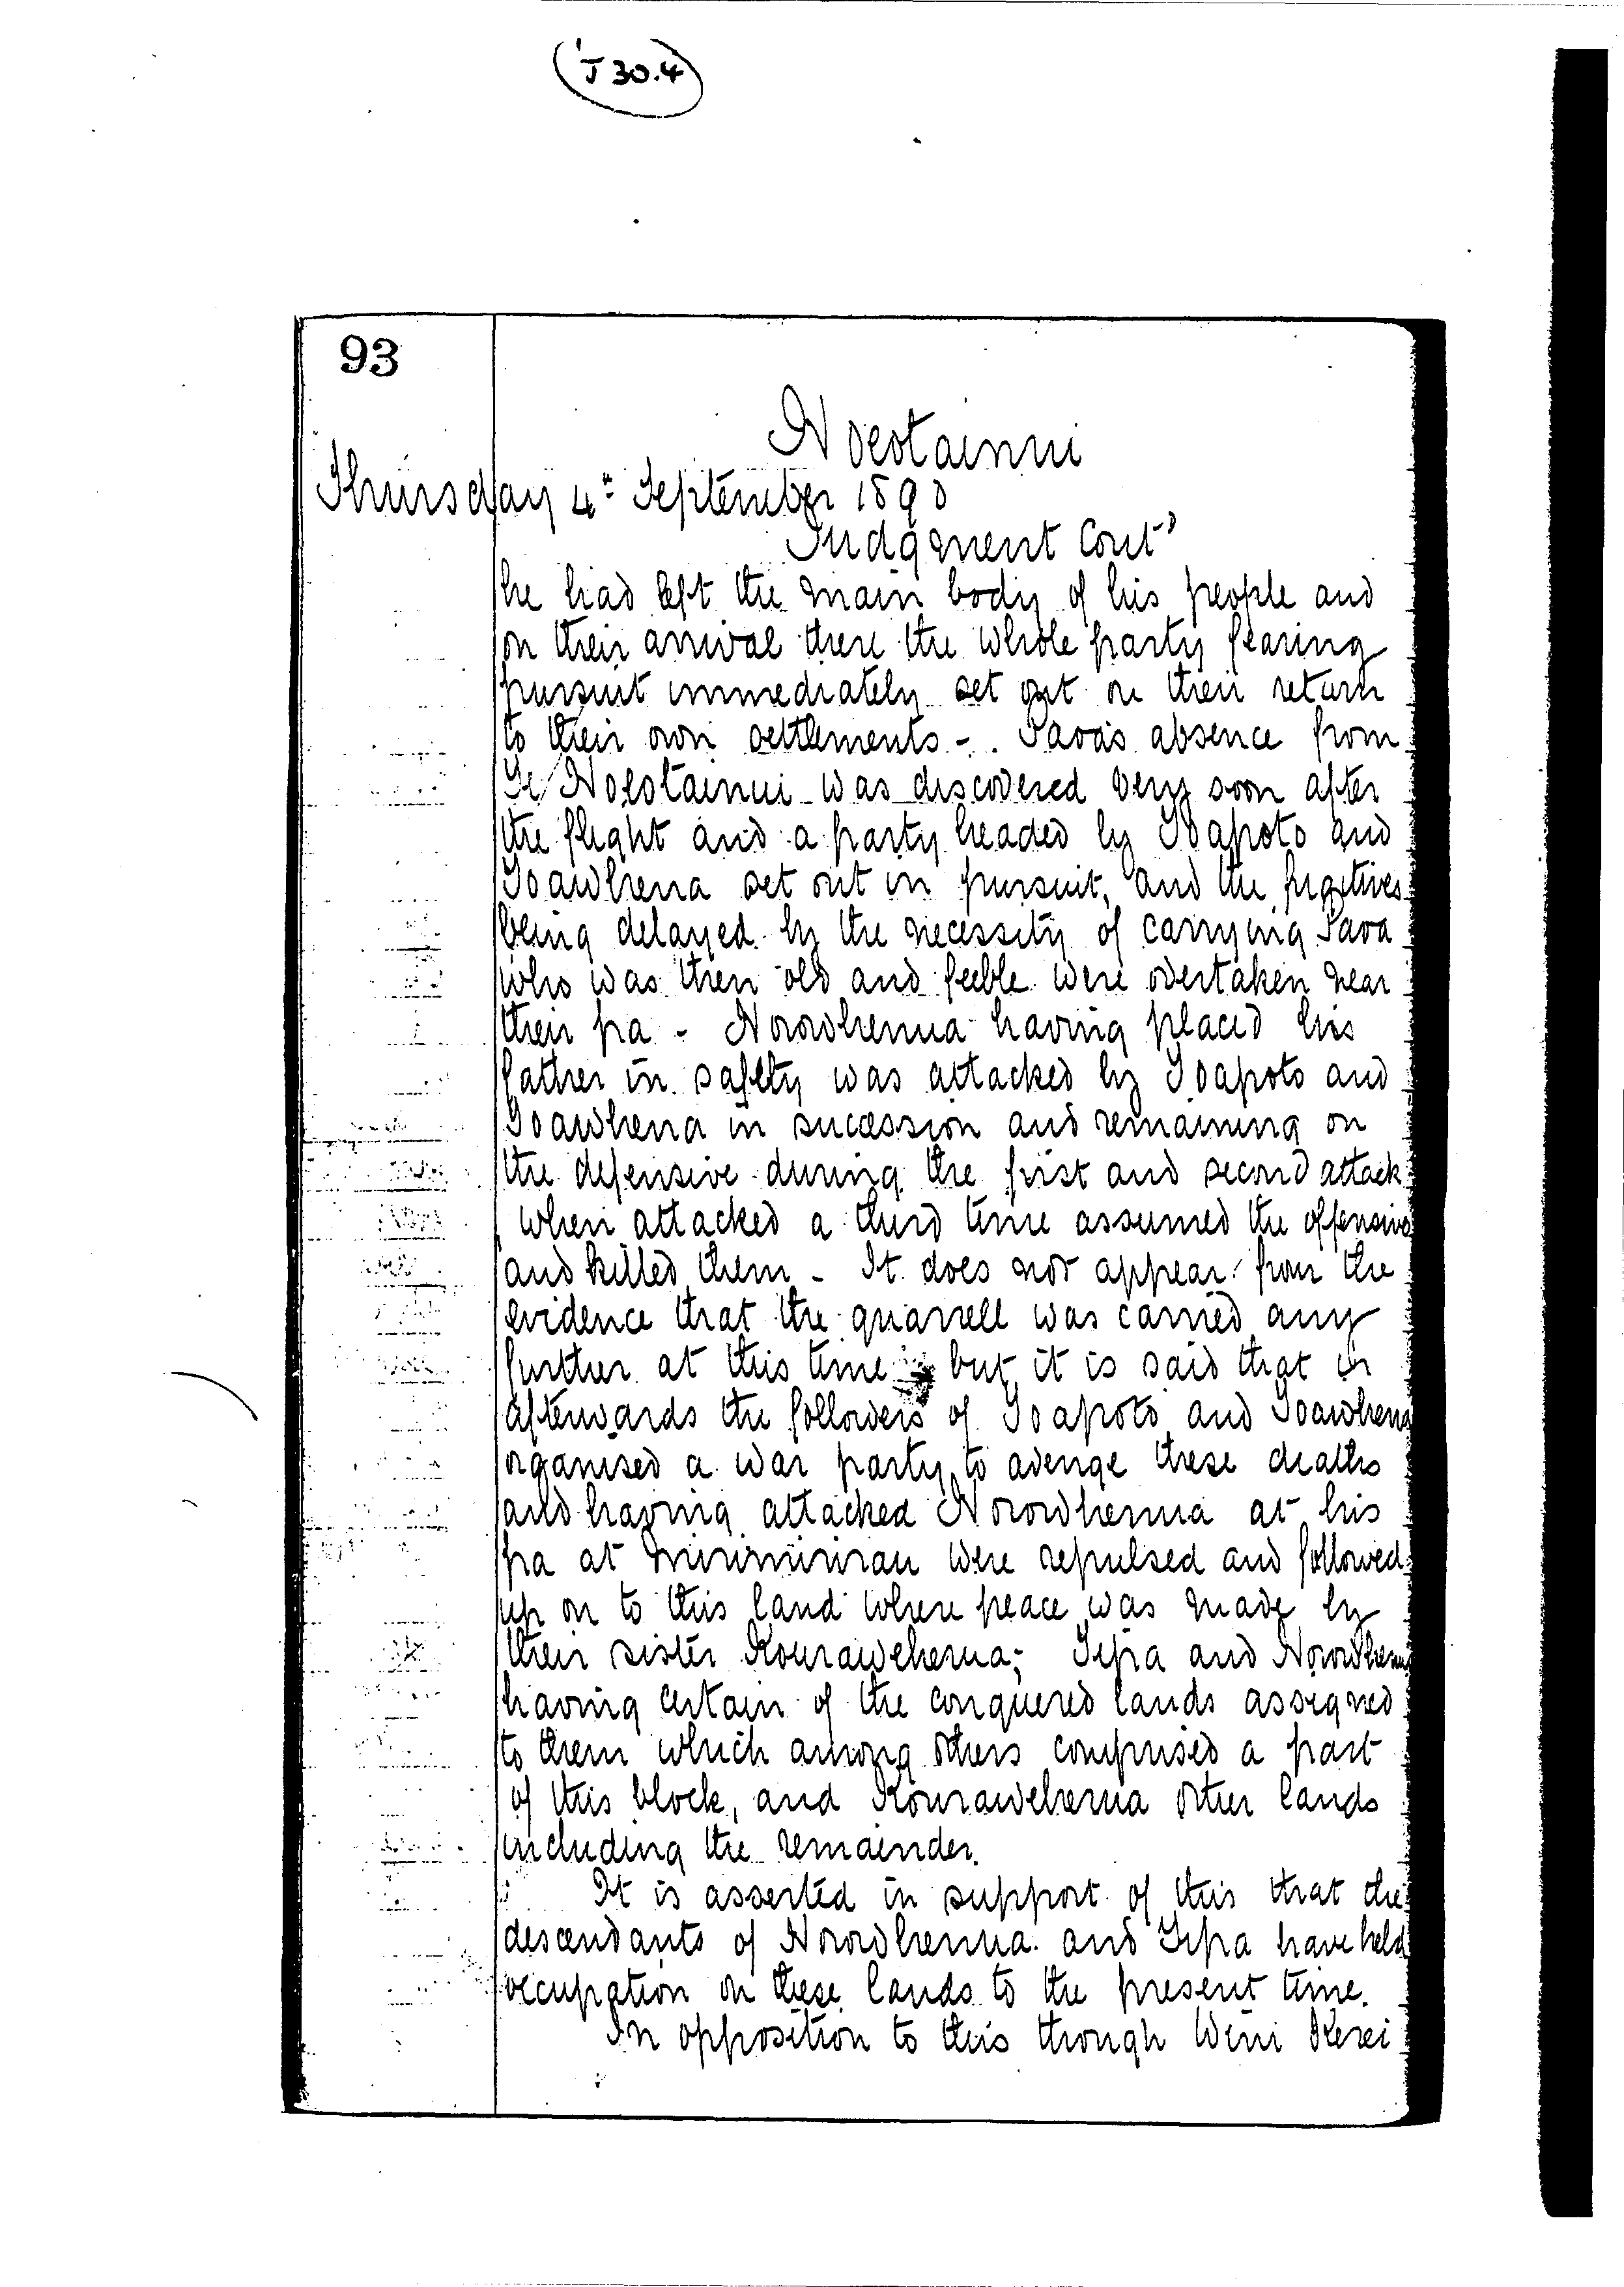 (J 30.4)
93
Ngeotainui
Thursday 4th September 1890
Judgment Contd
he had left the main body of his people and
on their arrival there the whole party fearing
pursuit immediately set out on their return
to their own settlements -. Tawa's absence from
Te Ngeotainui was discovered very soon after
the flight and a party headed by Toapoto and
Toawhena set out in pursuit, and the fugitives
being delayed by the necessity of carrying Tawa
who was then old and feeble were overtaken near
their pa - Norowhenua having placed his
father in safety was attacked by Toapoto and
Toawhena in sucession and remaining on
the defensive during the first and second attack
when attacked a third time assumed the offensive
and killed them - It does not appear from the
evidence that the quarrell was carried any
further at this time but it is said that
afterwards the followers of Toapoto and Toawhena
organised a war party to avenge these deaths
and having attacked Norowhenua at his
pa at were repulsed and followed
up on to this land where peace was made by
their sister Kourawehenua; Tepa and Norowhenua
having certain of the conquered lands assigned
to them which among others comprised a part
of this block, and Kourawehenua other lands
including the remainder.
It is asserted in support of this that the
descendants of Norowhenua and Tepa have held
occupation on these lands to the present time.
In opposition to this though Wini Kerei